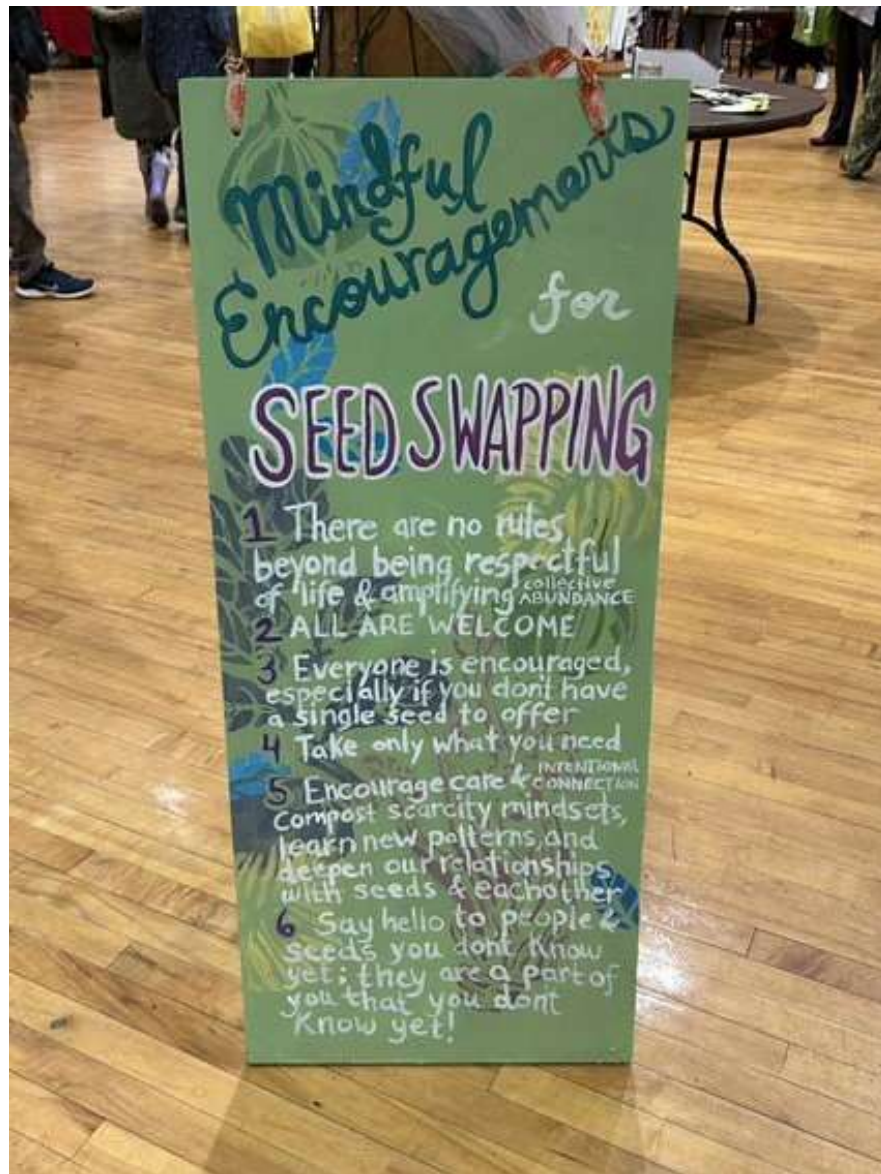 Mindful
Encouragements
for
SEED SWAPPING
1 There are no rules
beyond being respectful
of life & amplifying collective ABUNDANCE
2 ALL ARE WELCOME
3 Everyone is encouraged,
especially if you don't have
a single seed to offer
4 Take only what you need
5 Encourage care & INTENTIONAL CONNECTION
compost scarcity mindsets,
learn new patterns, and
deepen our relationships
with seeds & eachother
6 Say hello to people &
seeds you dont know
yet; they are a part of
you that you dont
know yet!